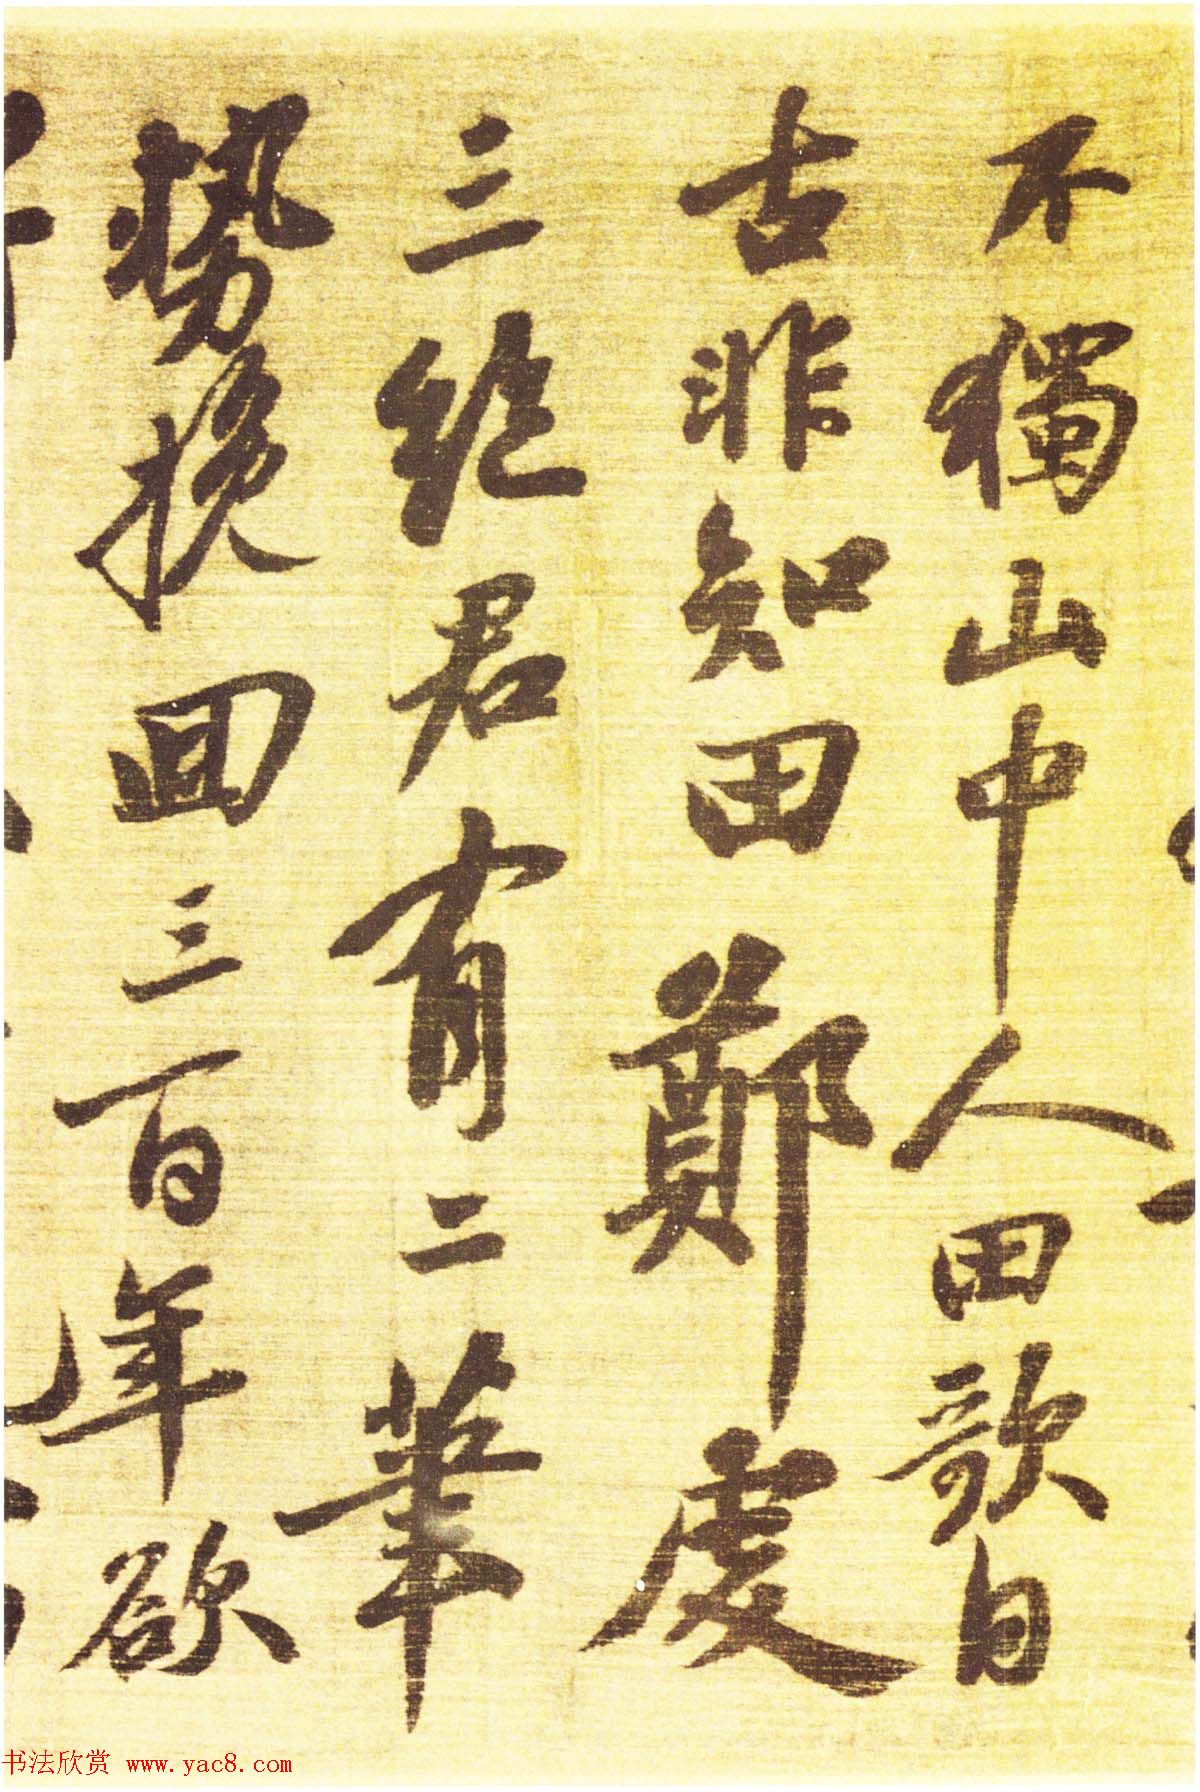 不獨山中人田歌自
古非知田鄭虔
三絕君有二筆
勢挽回三百年欲
书法欣赏 www.yac8.com